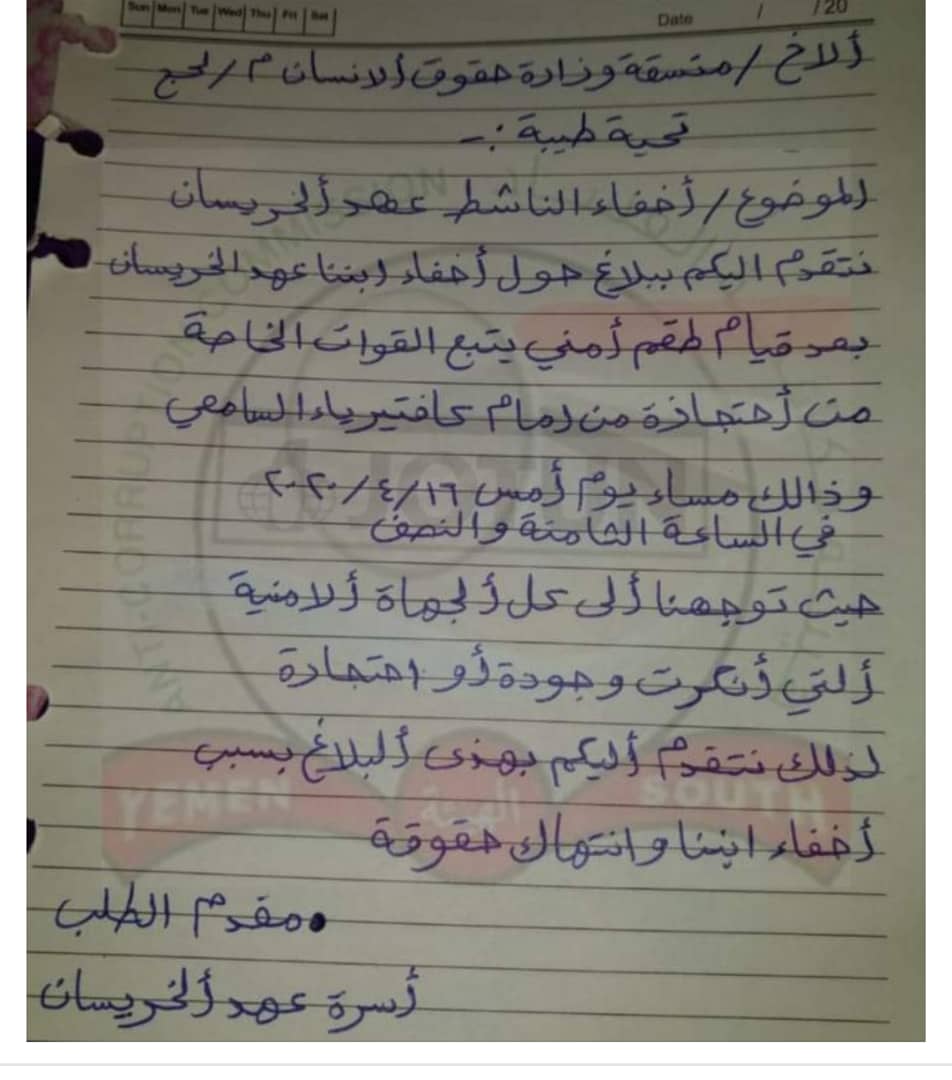 Sun Mon Tue Wed Thu Fri Sat
Date / /20
ألاخ / منسقة وزادة حقوق ألانسان م/ لحج
تحية طيبة :-
الموضوع / أخفاء الناشط عهد ألخريسان
نتقدم اليكم ببلاغ حول أخفاء ابننا عهد الخريسان
بعد قيام طقم أمني يتبع القوات الخاصة
من أحتجازة من امام كافتيرياء السامعي
وذالك مساء يوم أمس ١٦/٤/٢٠٢٠
في الساعة الثامنة والنصف
حيث توجهنا ألى كل ألجهاة ألامنية
ألتي أنكرت وجودة أو احتجازة
لذلك نتقدم أليكم بهذى ألبلاغ بسبب
أخفاء ابننا وانتهاك حقوقة
•مقدم الطلب
أسرة عهد ألخريسان
ANTI-CORRUPTION COMMISSION
YEMEN
SOUTH